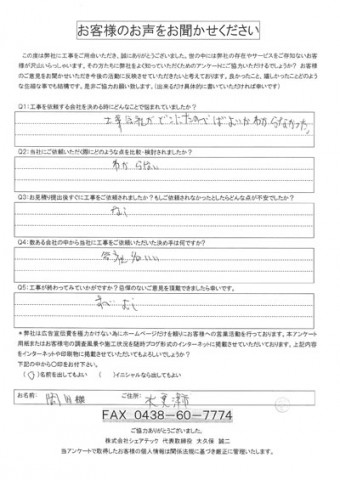 お客様のお声をお聞かせください
この度は弊社に工事をご用命いただき、誠にありがとうございました。世の中には弊社の存在やサービスをご存知ないお客
様が沢山いらっしゃいます。その方たちに弊社をよく知っていただくためのアンケートにご協力いただけるでしょうか？ お客様
のご意見をお聞かせいただき今後の活動に反映させていただきたいと考えております。良かったこと、嬉しかったことどのよう
な些細な事でも結構です。是非ご協力お願い致します。（出来るだけ具体的に書いていただければ幸いです）
Q1：工事を依頼する会社を決める時にどんなことで悩まれていましたか？
工事会社がどこにたのめばよいかわからなかった。
Q2：当社にご依頼いただく際にどのような点を比較・検討されましたか？
わからない
Q3：お見積り提出後すぐに工事をご依頼されましたか？もしご依頼されなかったとしたらどんな点が不安でしたか？
なし
Q4：数ある会社の中から当社に工事をご依頼いただいた決め手は何ですか？
Q5：工事が終わってみていかがですか？忌憚のないご意見を頂戴できましたら幸いです。
よし
＊弊社は広告宣伝費を極力かけない為にホームページだけを頼りにお客様への営業活動を行っております。本アンケート
用紙またはお客様宅の調査風景や施工状況を随時ブログ形式のインターネットに掲載させていただいております。上記内容
をインターネットや印刷物に掲載させていただいてもよろしいでしょうか？
下記の中から〇印をお付け下さい。
（〇）名前を出してもよい （ ）イニシャルなら出してもよい
お名前: 様 ご住所: 木更津市
FAX 0438-60-7774
ご協力ありがとうございました。
株式会社シェアテック 代表取締役 大久保 誠二
当アンケートで取得したお客様の個人情報は関係法規に基づき厳正に管理いたします。